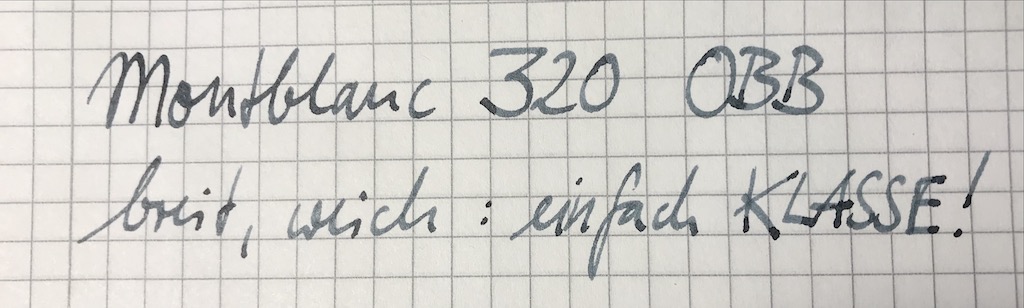 Montblanc 320 OBB
breit, weich : einfach KLASSE!